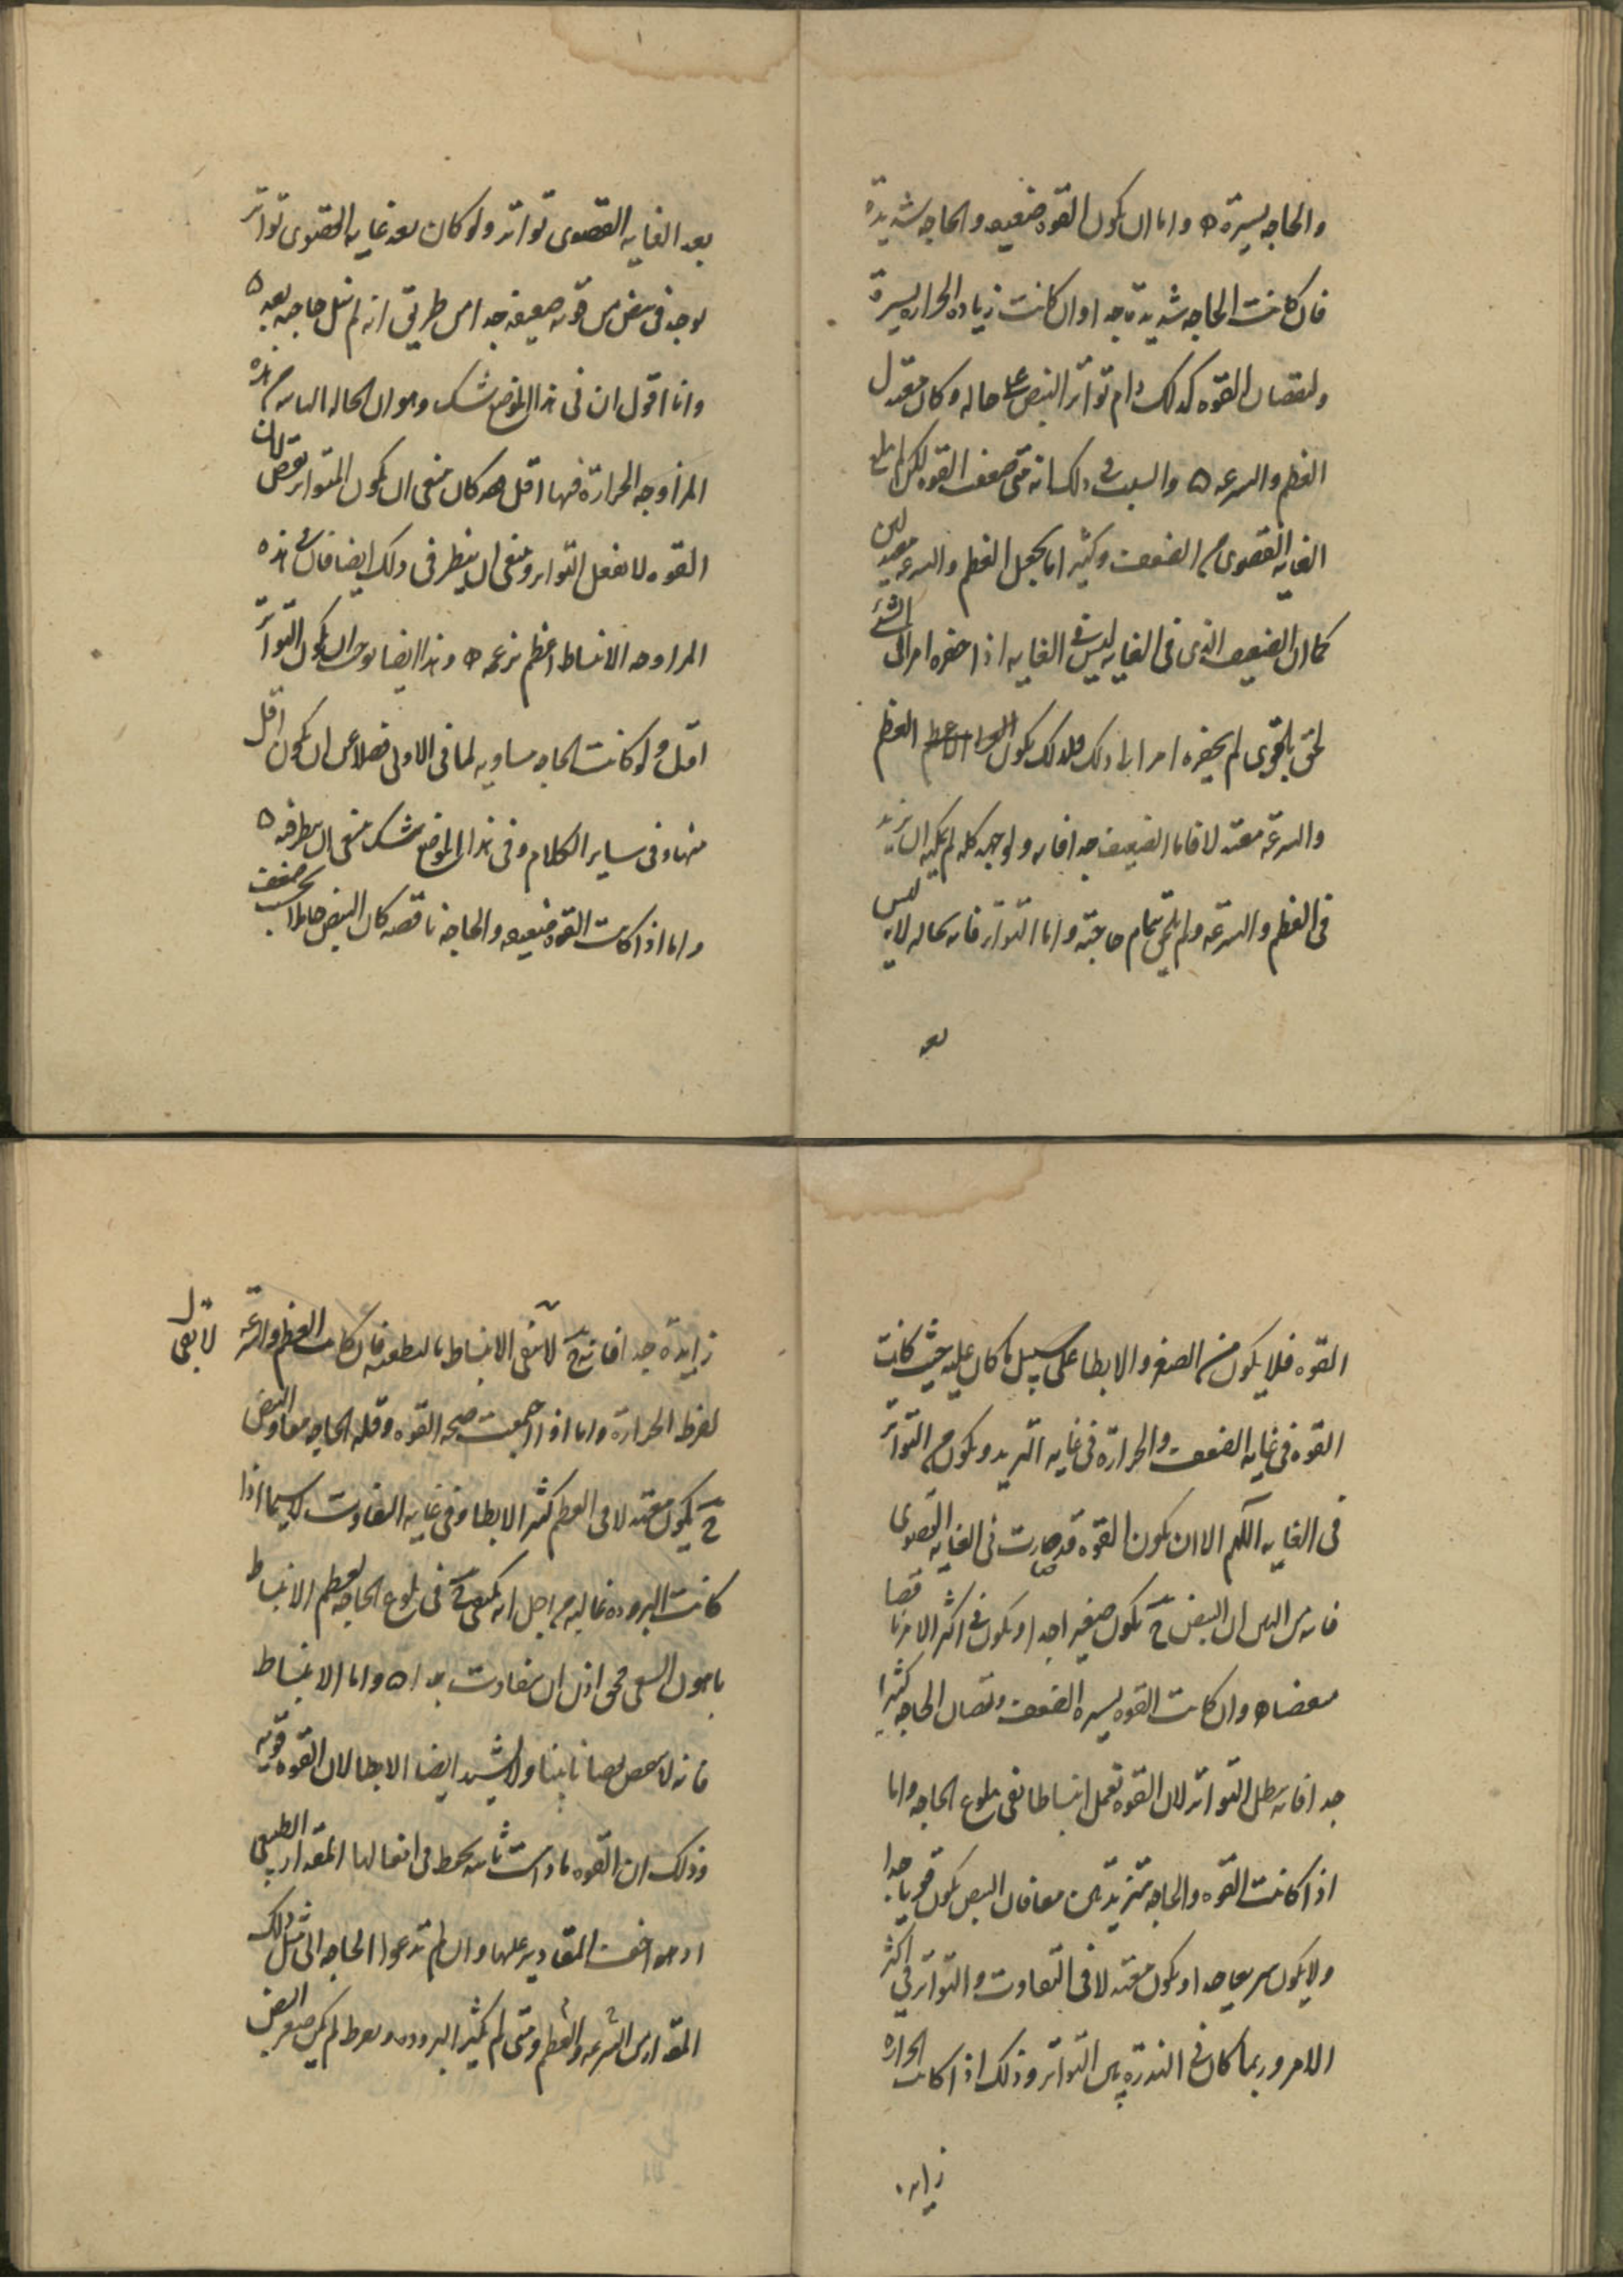 والحاجه يسيرة ه واما ان يكون القوه ضعيفه والحاجه شديدة
فان كانت الحاجه شديدة جدا وان كانت زيادة الحراره يسيرة
ونقصان القوه كذلك دام تواتر النبض على حاله وكان معتدل
العظم والسرعه ه والسبب في ذلك انه متى ضعف القوه لكن لم يبلغ
الغايه القصوى من الضعف وكثيرا ما يجعل العظم والسرعه معتدلين
كما ان الضعيف الذي في الغايه ليس في الغايه اذا حفزه امر الى الشئ
لحق بالقوى لم يحفزه امر الى ذلك فلذلك يكون العظم
والسرعه معتدلا فاما الضعيف جدا فانه ولو اجهد كله لم يمكنه ان يزيد
في العظم والسرعه ولم يلحق تمام حاجته واما التواتر فانه بحاله لانه ليس
بعد
بعد الغايه القصوى تواتر ولو كان بعد غايه القصوى تواتر
لوجد في نبض من قوته ضعيفه جدا من طريق انه لم ينل حاجته بعد ه
وانا اقول ان في هذا الموضع شك وهو ان الحاله الثانيه من هذه
المزاوجه الحرارة فيها اقل فقد كان ينبغي ان يكون المتواتر نقص لان
القوه لا تفعل التواتر وينبغي ان ينظر في ذلك ايضا فان في هذه
المزاوجه الانبساط اعظم بزعمه ه وهذا ايضا يوجب ان يكون التواتر
اقل ولو كانت الحاجه مساويه لما في الاولى فضلا عن ان يكون اقل
منها وفي ساير الكلام وفي هذا الموضع شك ينبغي ان ينظر فيه ه
واما اذا كانت القوه ضعيفه والحاجه ناقصه كان النبض خاملا بحسب ضعف
القوه فلا يكون من الصغر والابطا على سبيل ما كان عليه حيث كانت
القوه في غايه الضعف والحرارة في غايه التزيد ويكون من التواتر
في الغايه اللهم الا ان يكون القوه قد صارت في الغايه القصوى
فانه من البين ان النبض ح يكون صغيرا جدا ويكون في اكثر الامر ناقصا
وان كانت القوه يسيره الضعف ونقصان الحاجه كثيرا
جدا فانه يبطل التواتر لان القوه تعمل انبساطا تفي ببلوغ الحاجه واما
اذا كانت القوه والحاجه متزيدتين معا فان النبض يكون قويا جدا
ولا يكون سريعا جدا ويكون معتدلا في التفاوت والتواتر في اكثر
الامر وربما كان في الندرة بين التواتر وذلك اذا كانت الحرارة
زايدة
زايدة جدا فانه ح لا يفي الانبساط بالتطفيه فان كانت العظم والسرعه لا تفي
لفرط الحرارة واما اذا اجتمعت صحه القوه وقله الحاجه معا والنبض
ح يكون معتدلا في العظم كثير الابطا وفي غايه التفاوت لا سيما اذا
كانت البروده غالبه من اجل انه يكتفي ح في بلوغ الحاجه بعظم الانبساط
باهون السعي فحق اذن ان يتفاوت جدا ه واما الانبساط
فانه لا ينقص نقصانا بينا ولا يشتد ايضا الابطا لان القوه قويه
وذلك ان القوه ما دامت ثابته يحفظ في افعالها المقدار الطبيعي
او هو اخف المقادير عليها وان لم تدعوا الحاجه الى مثل ذلك
المقدار من السرعه والعظم ومتى لم يكثر البروده ويفرط لم يكن صغر النبض